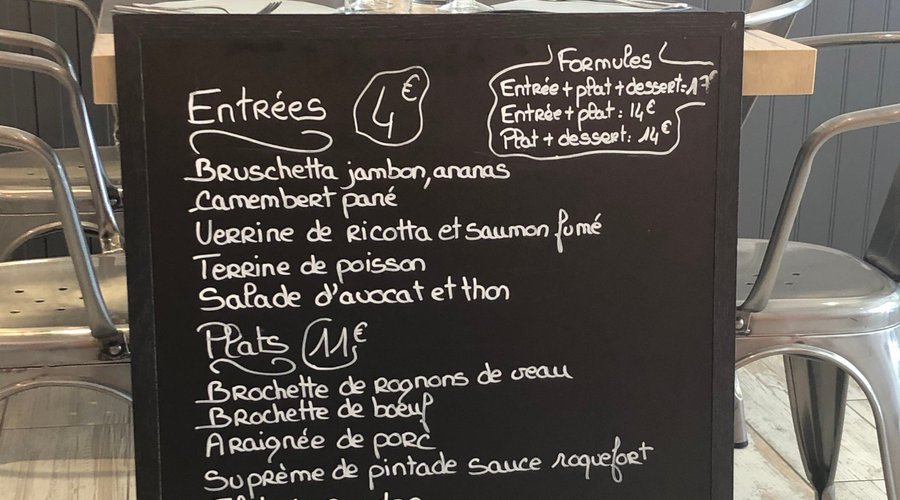 Formules
Entrée + plat + dessert = 17€
Entrée + plat : 14€
Plat + dessert : 14€
Entrées 4€
Bruschetta jambon, ananas
Camembert pané
Verrine de ricotta et saumon fumé
Terrine de poisson
Salade d'avocat et thon
Plats 11,€
Brochette de rognons de veau
Brochette de boeuf
Araignée de porc
Suprème de pintade sauce roquefort